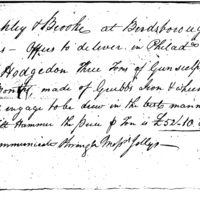 hley & Brooke at Birdsborough
s - Offers to deliver, in Philada
Hodgedon Three Tons of Gunscelp
made of Grubbs Iron & chose
engage to be drew in the best manner
Hammer the price p Ton is £52.10.
mmunicate through Messrs Jollys